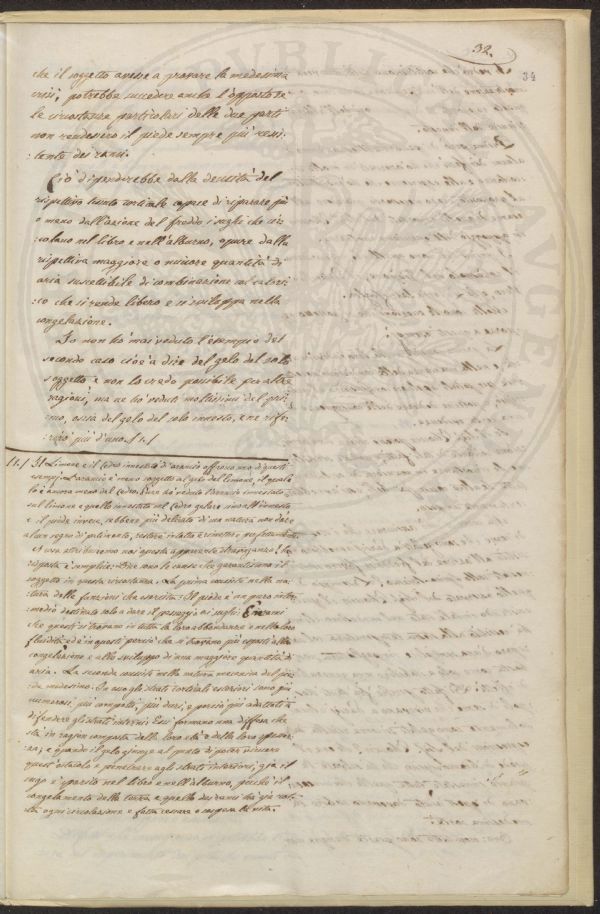 32.
34
che il soggetto avesse a provare la medesima
crisi, potrebbe succedere anche l'opposto se
le circostanze particolari delle due parti
non rendessero il piede sempre più resi-
:stente dei rami.
Ciò dipenderebbe dalla densità del
rispettivo tessuto corticale capace di riparare più
o meno dall'azione del freddo i sughi che cir-
:colano nel libro e nell'alburno, oppure dalla
rispettiva maggiore o minore quantità di
aria suscettibile di combinazione col calori-
:co che si rende libero e si sviluppa nella
congelazione.
Io non hò mai veduto l'esempio del
secondo caso cioè a dire del gelo del solo
soggetto e non lo credo possibile per altre
ragioni, ma ne hò veduti moltissimi del pri-
:mo, ossia del gelo del solo innesto, e ne rife-
:rirò più d'uno. /1./
/1./ Il Limone e il Cedro innestati d'arancio offrono uno di questi
esempj. L'arancio è meno soggetto al gelo del limone, il quale
lo è ancora meno del Cedro. Pure hò veduto l'arancio innestato
sul limone e quello innestato nel Cedro gelare sino all'innesto
e il piede invece, sebbene più delicato di sua natura non dare
alcun segno di patimento, restare intatto e rimettere perfettamente.
A cosa attribuiremo noi questa apparente stravaganza? La
risposta è semplice: Due sono le cause che garantiscono il
soggetto in questa circostanza. La prima consiste nella na-
:tura delle funzioni che esercita: Il piede è un puro inter-
:medio destinato solo a dare il passaggio ai sughi: È nei rami
che questi si trovano in tutta la loro abbondanza e nella loro
fluidità ed è in questi perciò che si trovano più esposti alla
congelazione e allo sviluppo di una maggiore quantità di
aria. La seconda consiste nella natura meccanica del pie-
:de medesimo. In esso gli strati corticali esteriori sono più
numerosi, più compatti, più duri, e perciò più adattati a
difendere gli strati interni: Essi formano una difesa che
stà in ragion composta della loro età e della loro spessez-
:za; e quando il gelo giunge al punto di poter vincere
quest'ostacolo e penetrare agli strati interiori, già il
sugo è sparito nel libro e nell'alburno, perchè il
congelamento della terra e quello dei rami hà già tol-
:ta ogni circolazione e fatta cessare o sospesa la vita.